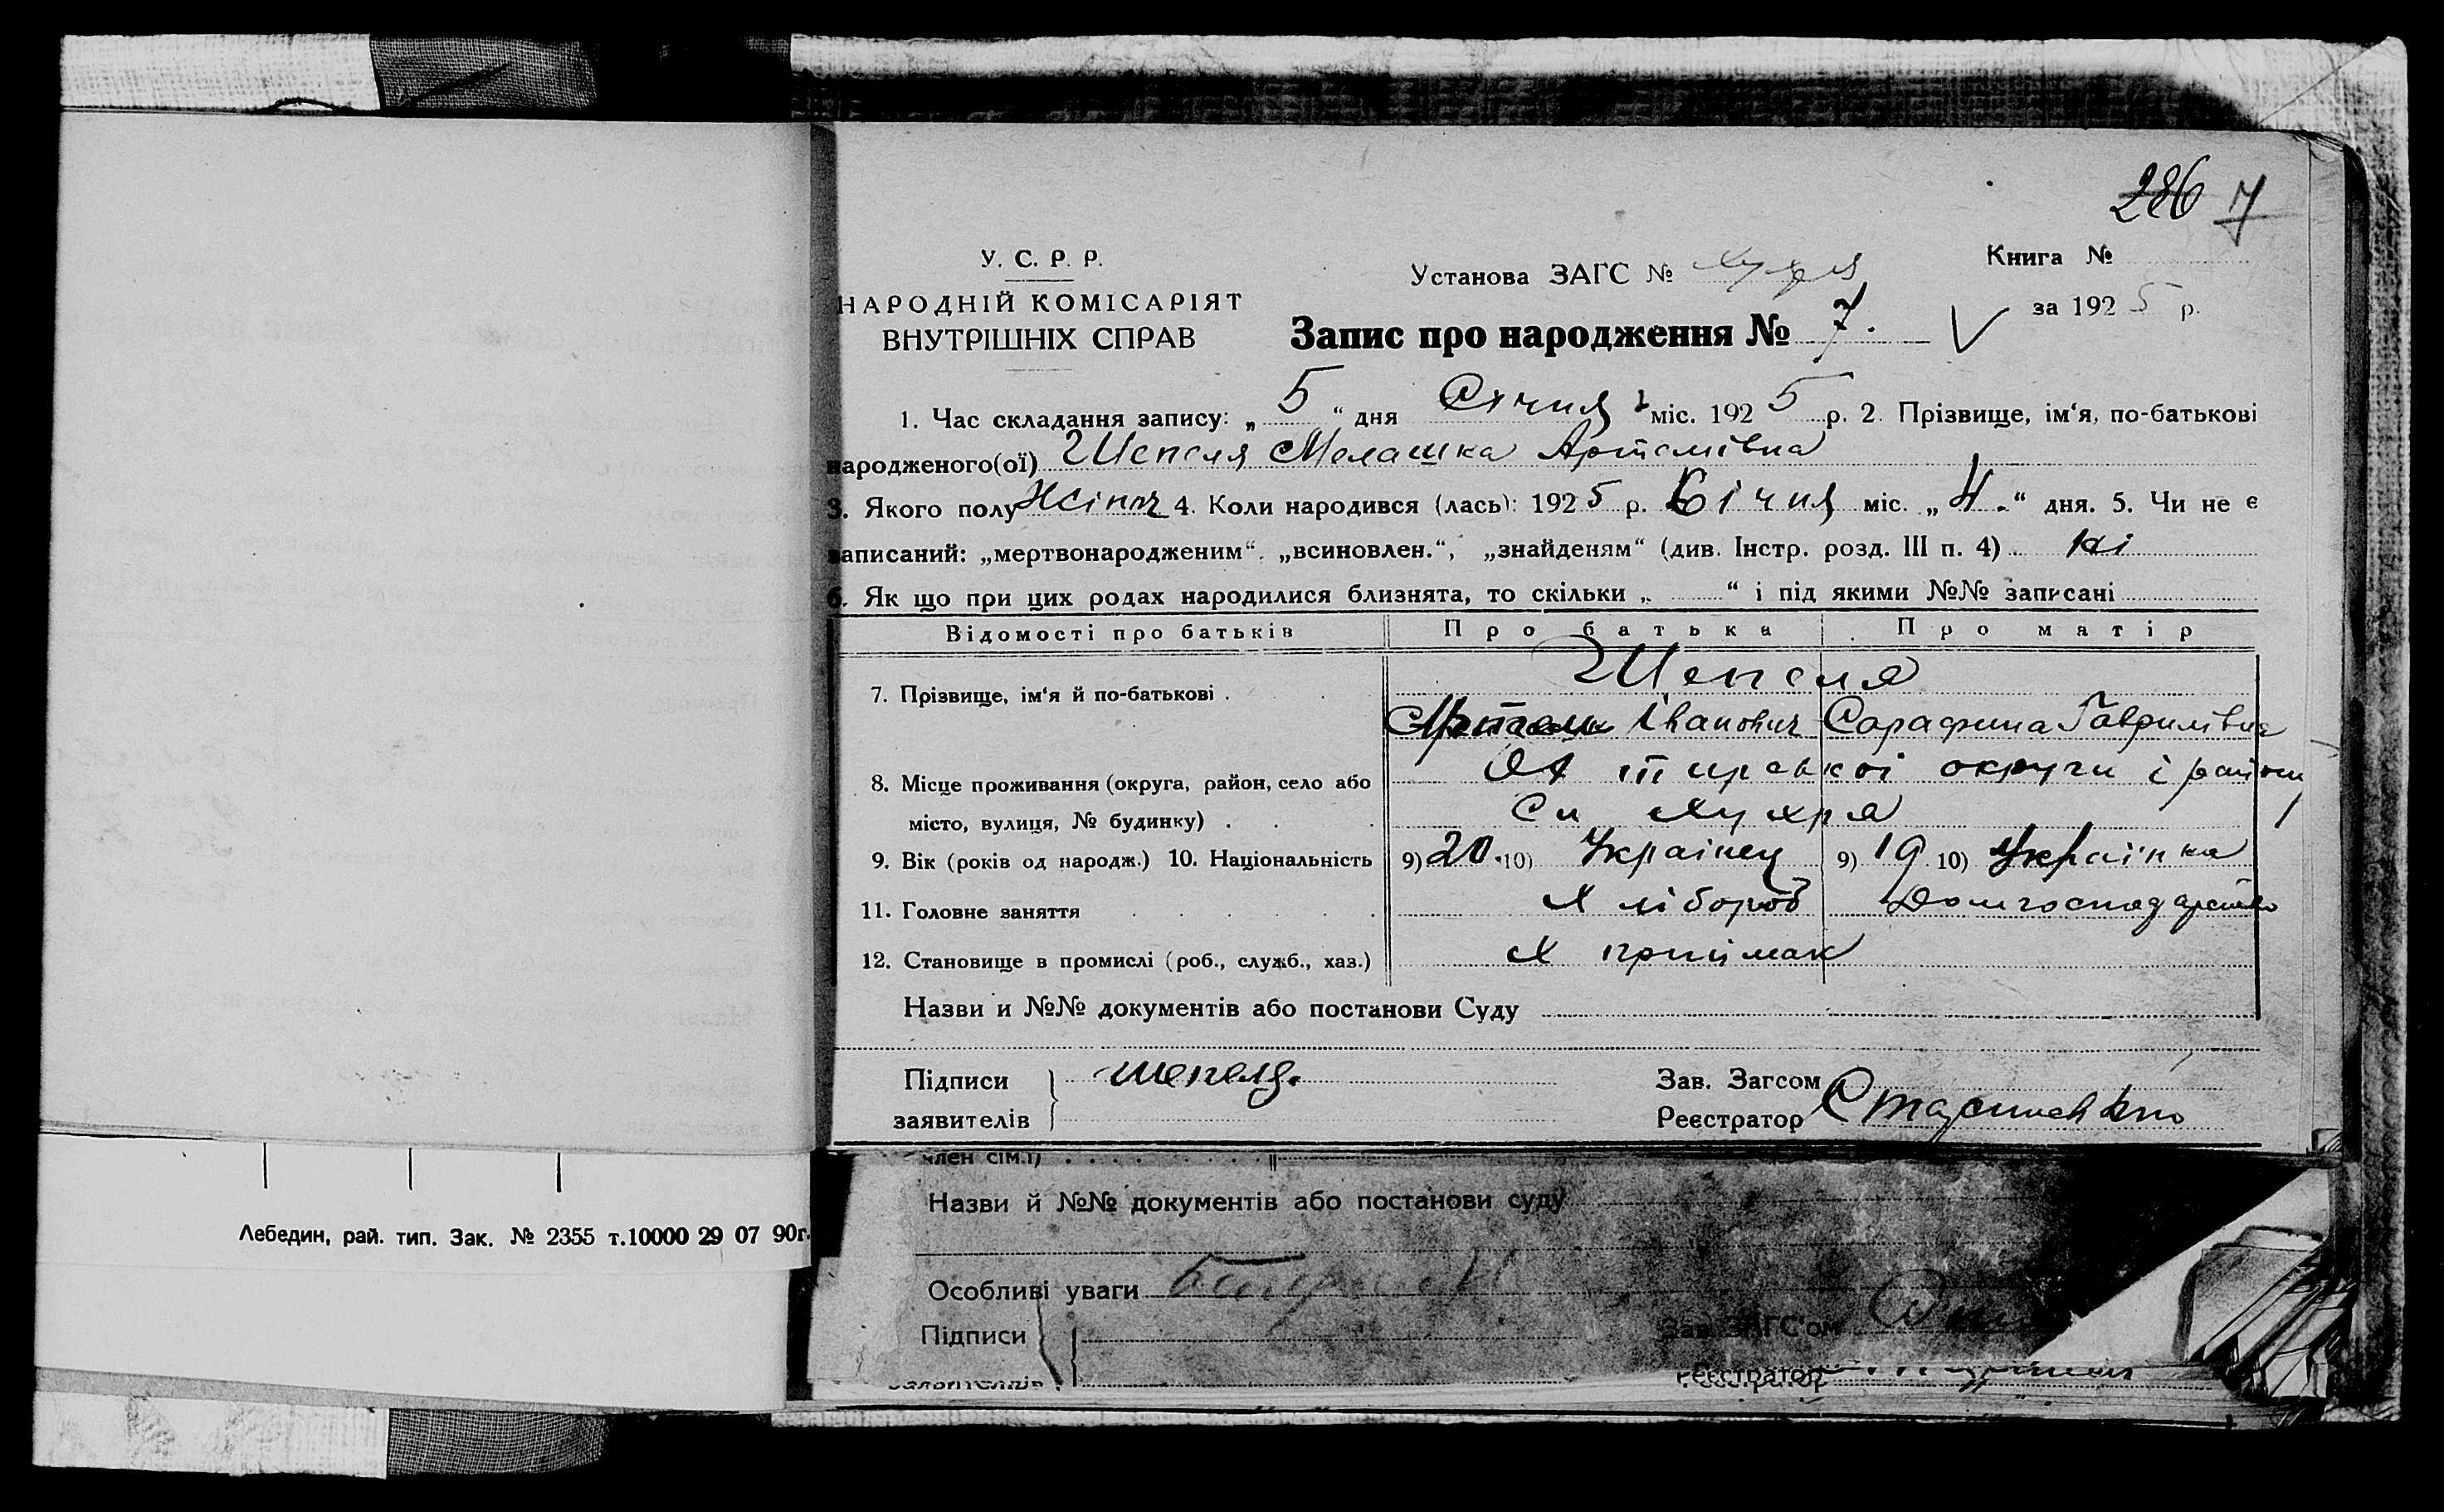 286 7
У. С. Р. Р.
НАРОДНІЙ КОМІСАРІЯТ
ВНУТРІШНІХ СПРАВ
Установа ЗАГС № Хухря
Книга №
за 1925 р.
Запис про народження № 7.
1. Час складання запису: „ 5 “ дня Січня міс. 1925 р. 2. Прізвище, ім‘я, по-батькові
народженого(ої) Шепеля Мелашка Артемівна
3. Якого полу Жіноч 4. Коли народився (лась): 1925 р. Січня міс. „ 4 “ дня. 5. Чи не є
записаний: „мертвонародженим“, „всиновлен.“, „знайденям“ (див. Інстр. розд. III п. 4) Ні
6. Як що при цих родах народилися близнята, то скільки „ “ і під якими №№ записані
Відомості про батьків Про батька Про матір
7. Прізвище, ім‘я й по-батькові . Шепеля
Артем Іванович Сарафина Гаврилівна
8. Місце проживання (округа, район, село або Охтирської округи і району
місто, вулиця, № будинку) . Сл Хухря
9. Вік (років од народж.) 10. Національність 9) 20. 10) Українец 9) 19 10) Українка
11. Головне заняття Хлібороб Домгосподарство
12. Становище в промислі (роб., служб., хаз.)
Назви и №№ документів або постанови Суду
Підписи шепеля.
заявителів
Зав. Загсом
Реєстратор
член сім.ї)
Назви й №№ документів або постанови суду
Особливі уваги
Підписи
Зав. ЗАГС'ом
Реєстратор
Лебедин, рай. тип. Зак. № 2355 т.10000 29 07 90г.